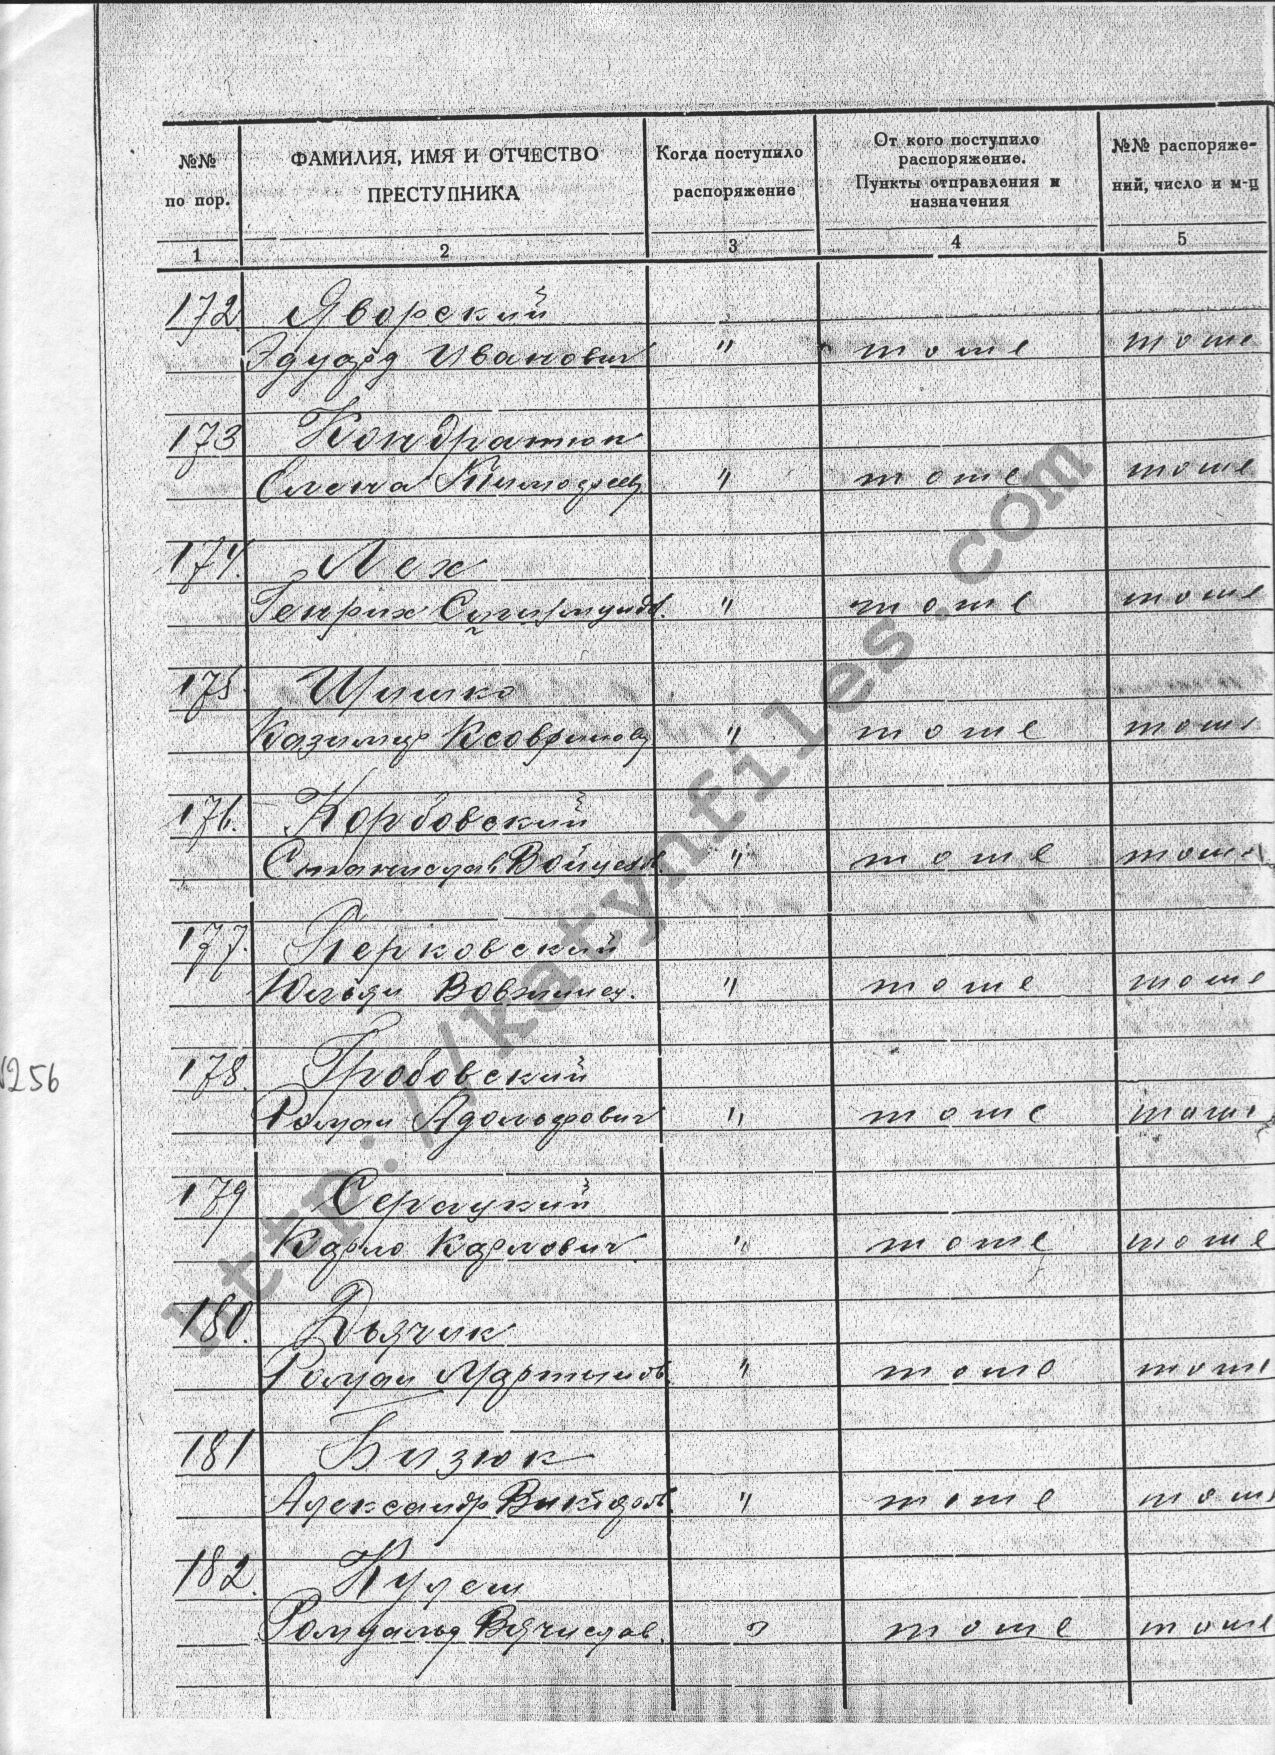 №№ по пор. ФАМИЛИЯ, ИМЯ И ОТЧЕСТВО ПРЕСТУПНИКА Когда поступило распоряжение От кого поступило распоряжение. Пункты отправления и назначения №№ распоряже-ний, число и м-ц
1 2 3 4 5
172 Яворский
Эдуард Иванович " тоже тоже
173 Кондратюк
" тоже тоже
174. Лех
Генрих Сигизмундов. " тоже тоже
175. Шишко
Казимир " тоже тоже
176. Корбовский
Станислав Войцехов. " тоже тоже
177. Перковский
Юльян " тоже тоже
1256
178. Гробовский
Роман Адольфович " тоже тоже
179
Карло Карлович " тоже тоже
180. Дьячик
Роман Мартинов. " тоже тоже
181 Бизюк
Александр " тоже тоже
182. Кулеш
Ромуальд Вячислав. " тоже тоже
http://katynfiles.com